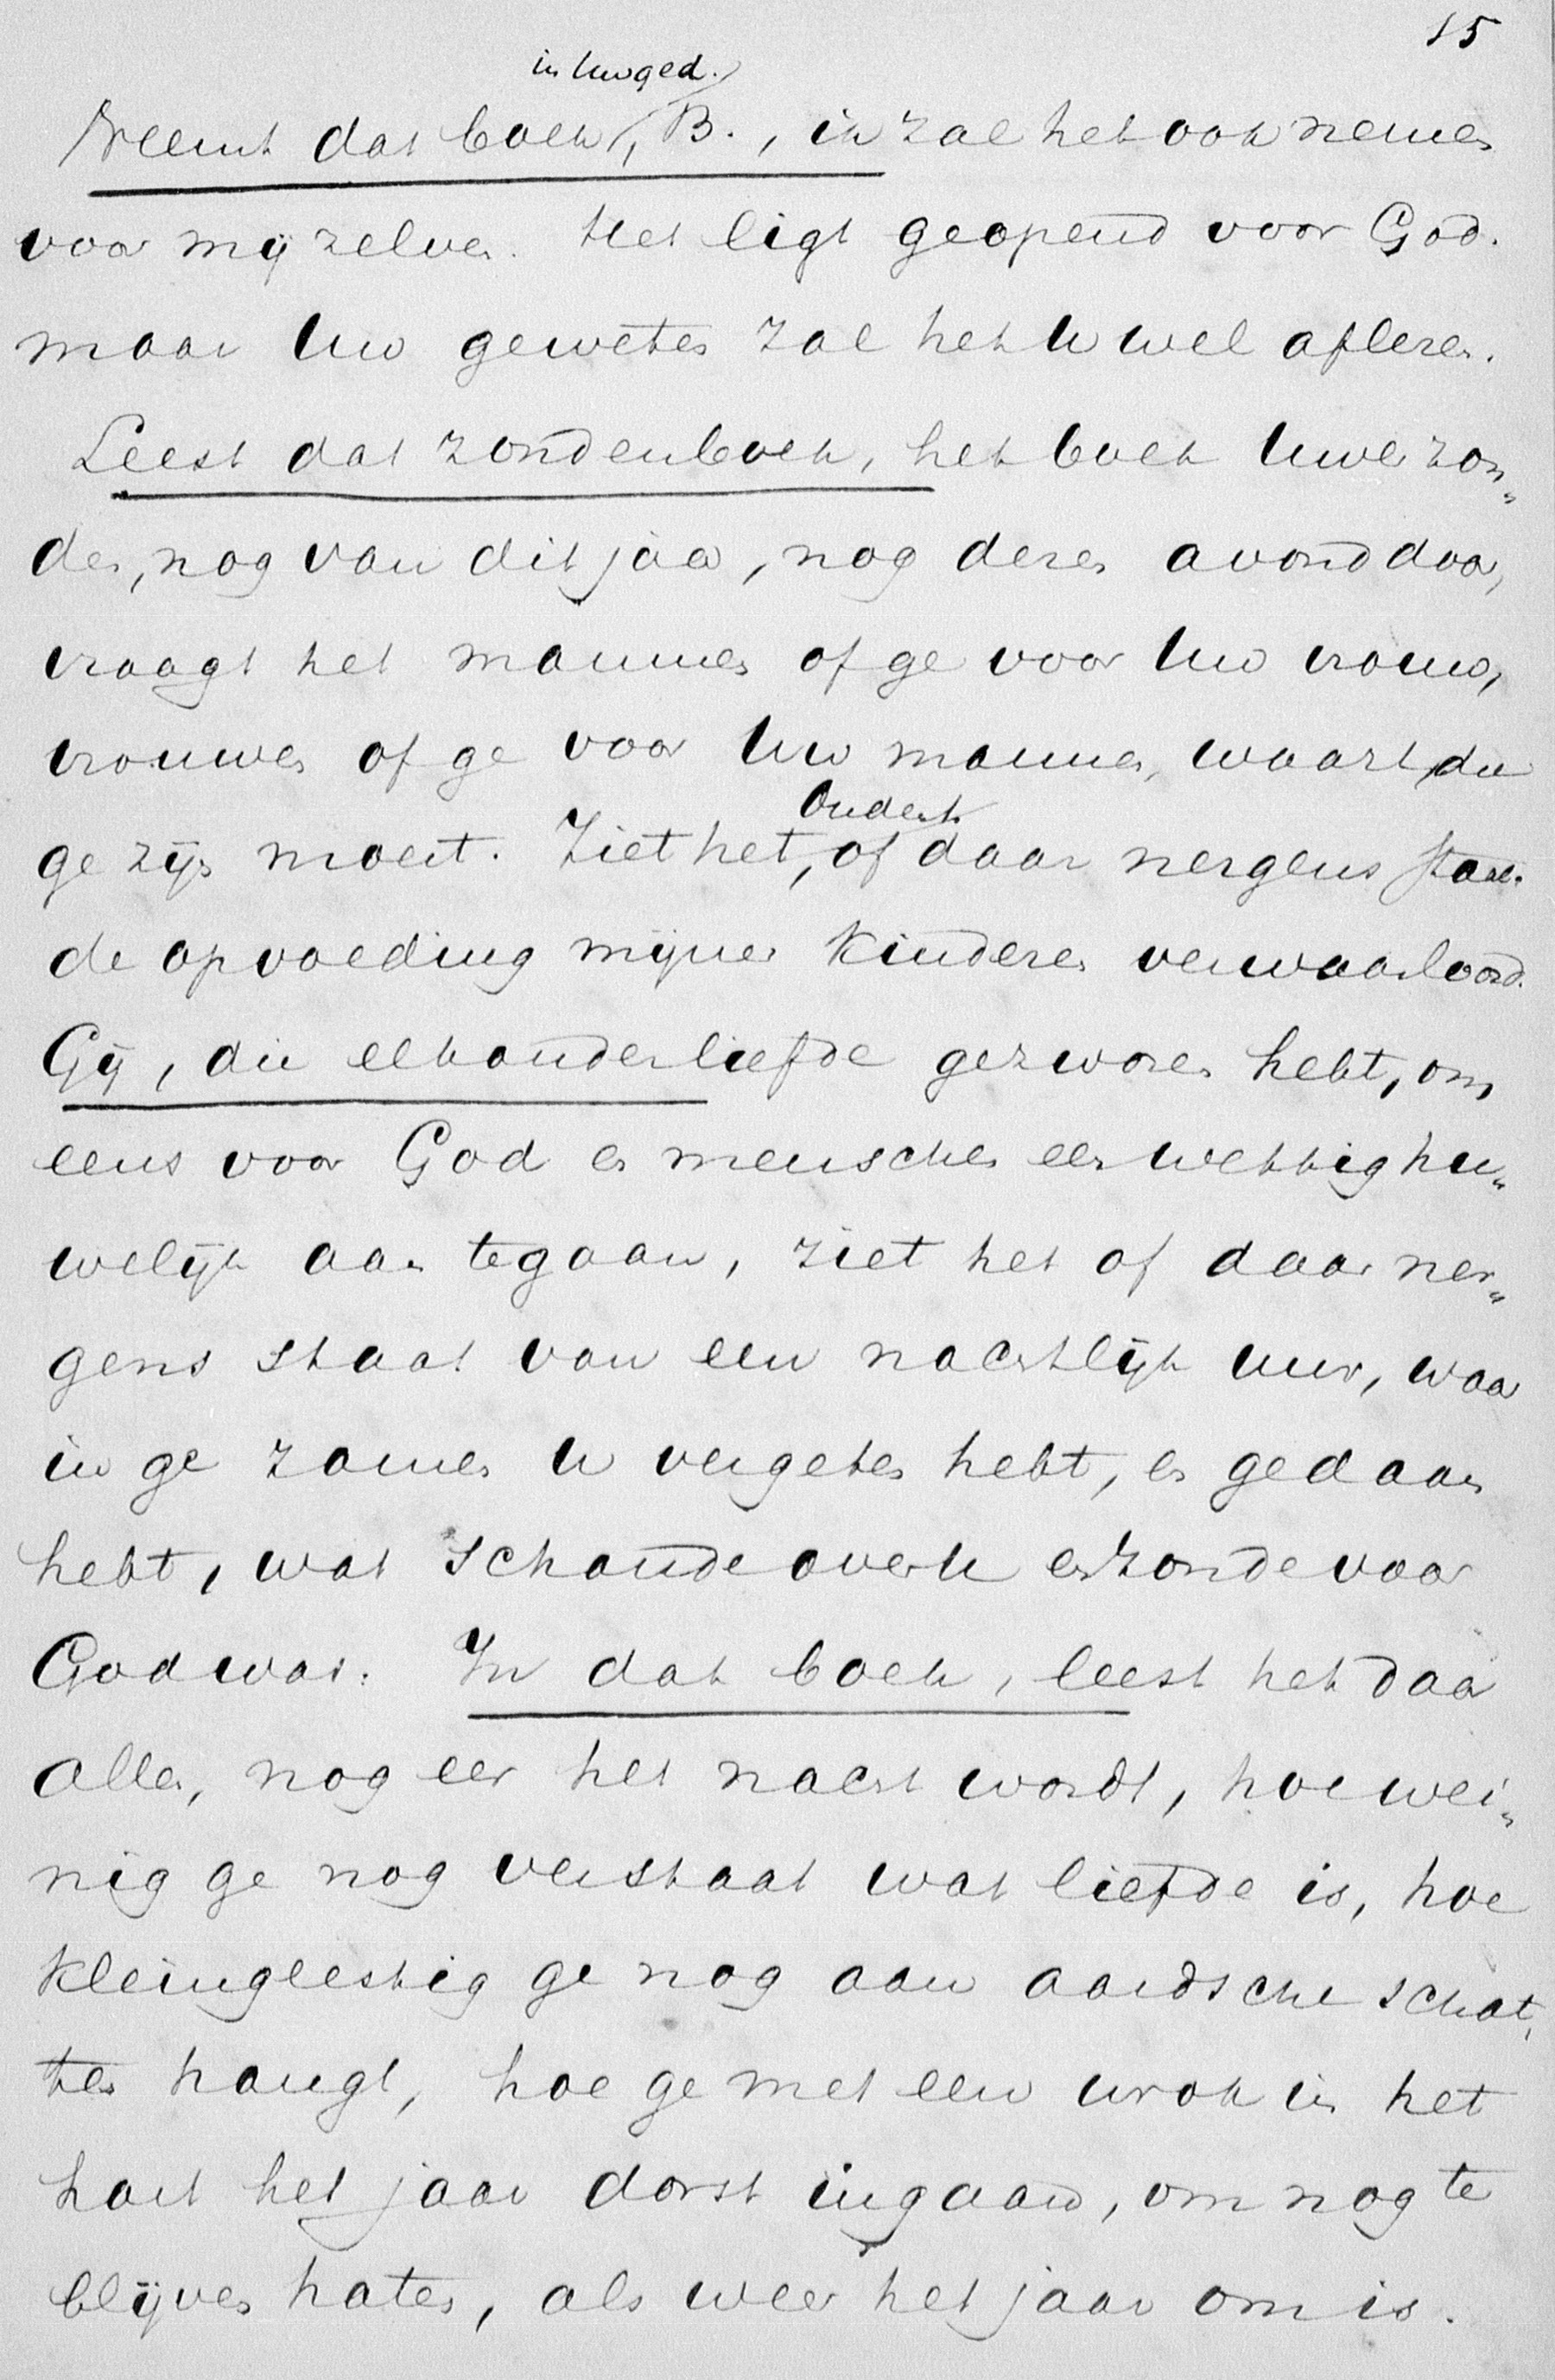 15
in Uw ged.
Neemt dat boek, B., ik zal het ook nemen
voor mij zelven. Het ligt geopend voor God.
maar Uw geweten zal het U wel aflezen.
Leest dat zondenboek, het boek Uwer zon„
den, nog van dit jaar, nog dezen avond door,
vraagt het mannen of ge voor Uw vrouw,
vrouwen of ge voor Uw mannen, waart, die
Ouders
ge zijn moest. Ziet het, of daar nergens staat.
de opvoeding mijner kinderen verwaarloosd.
Gij, die elkander liefde gezworen hebt, om
eens voor God en menschen een wettig hu„
welijk aan te gaan, ziet het of daar ner„
gens staat van een nachtlijk uur, waar
in ge zamen U vergeten hebt, en gedaan
hebt, wat schande over U en zonde voor
God was. In dat boek, leest het daar
allen, nog eer het nacht wordt, hoe wei„
nig ge nog verstaat wat liefde is, hoe
kleingeestig ge nog aan aardsche schat„
ten hangt, hoe ge met een wrok in het
hart het jaar dorst ingaan, om nog te
blijven haten, als weer het jaar om is.